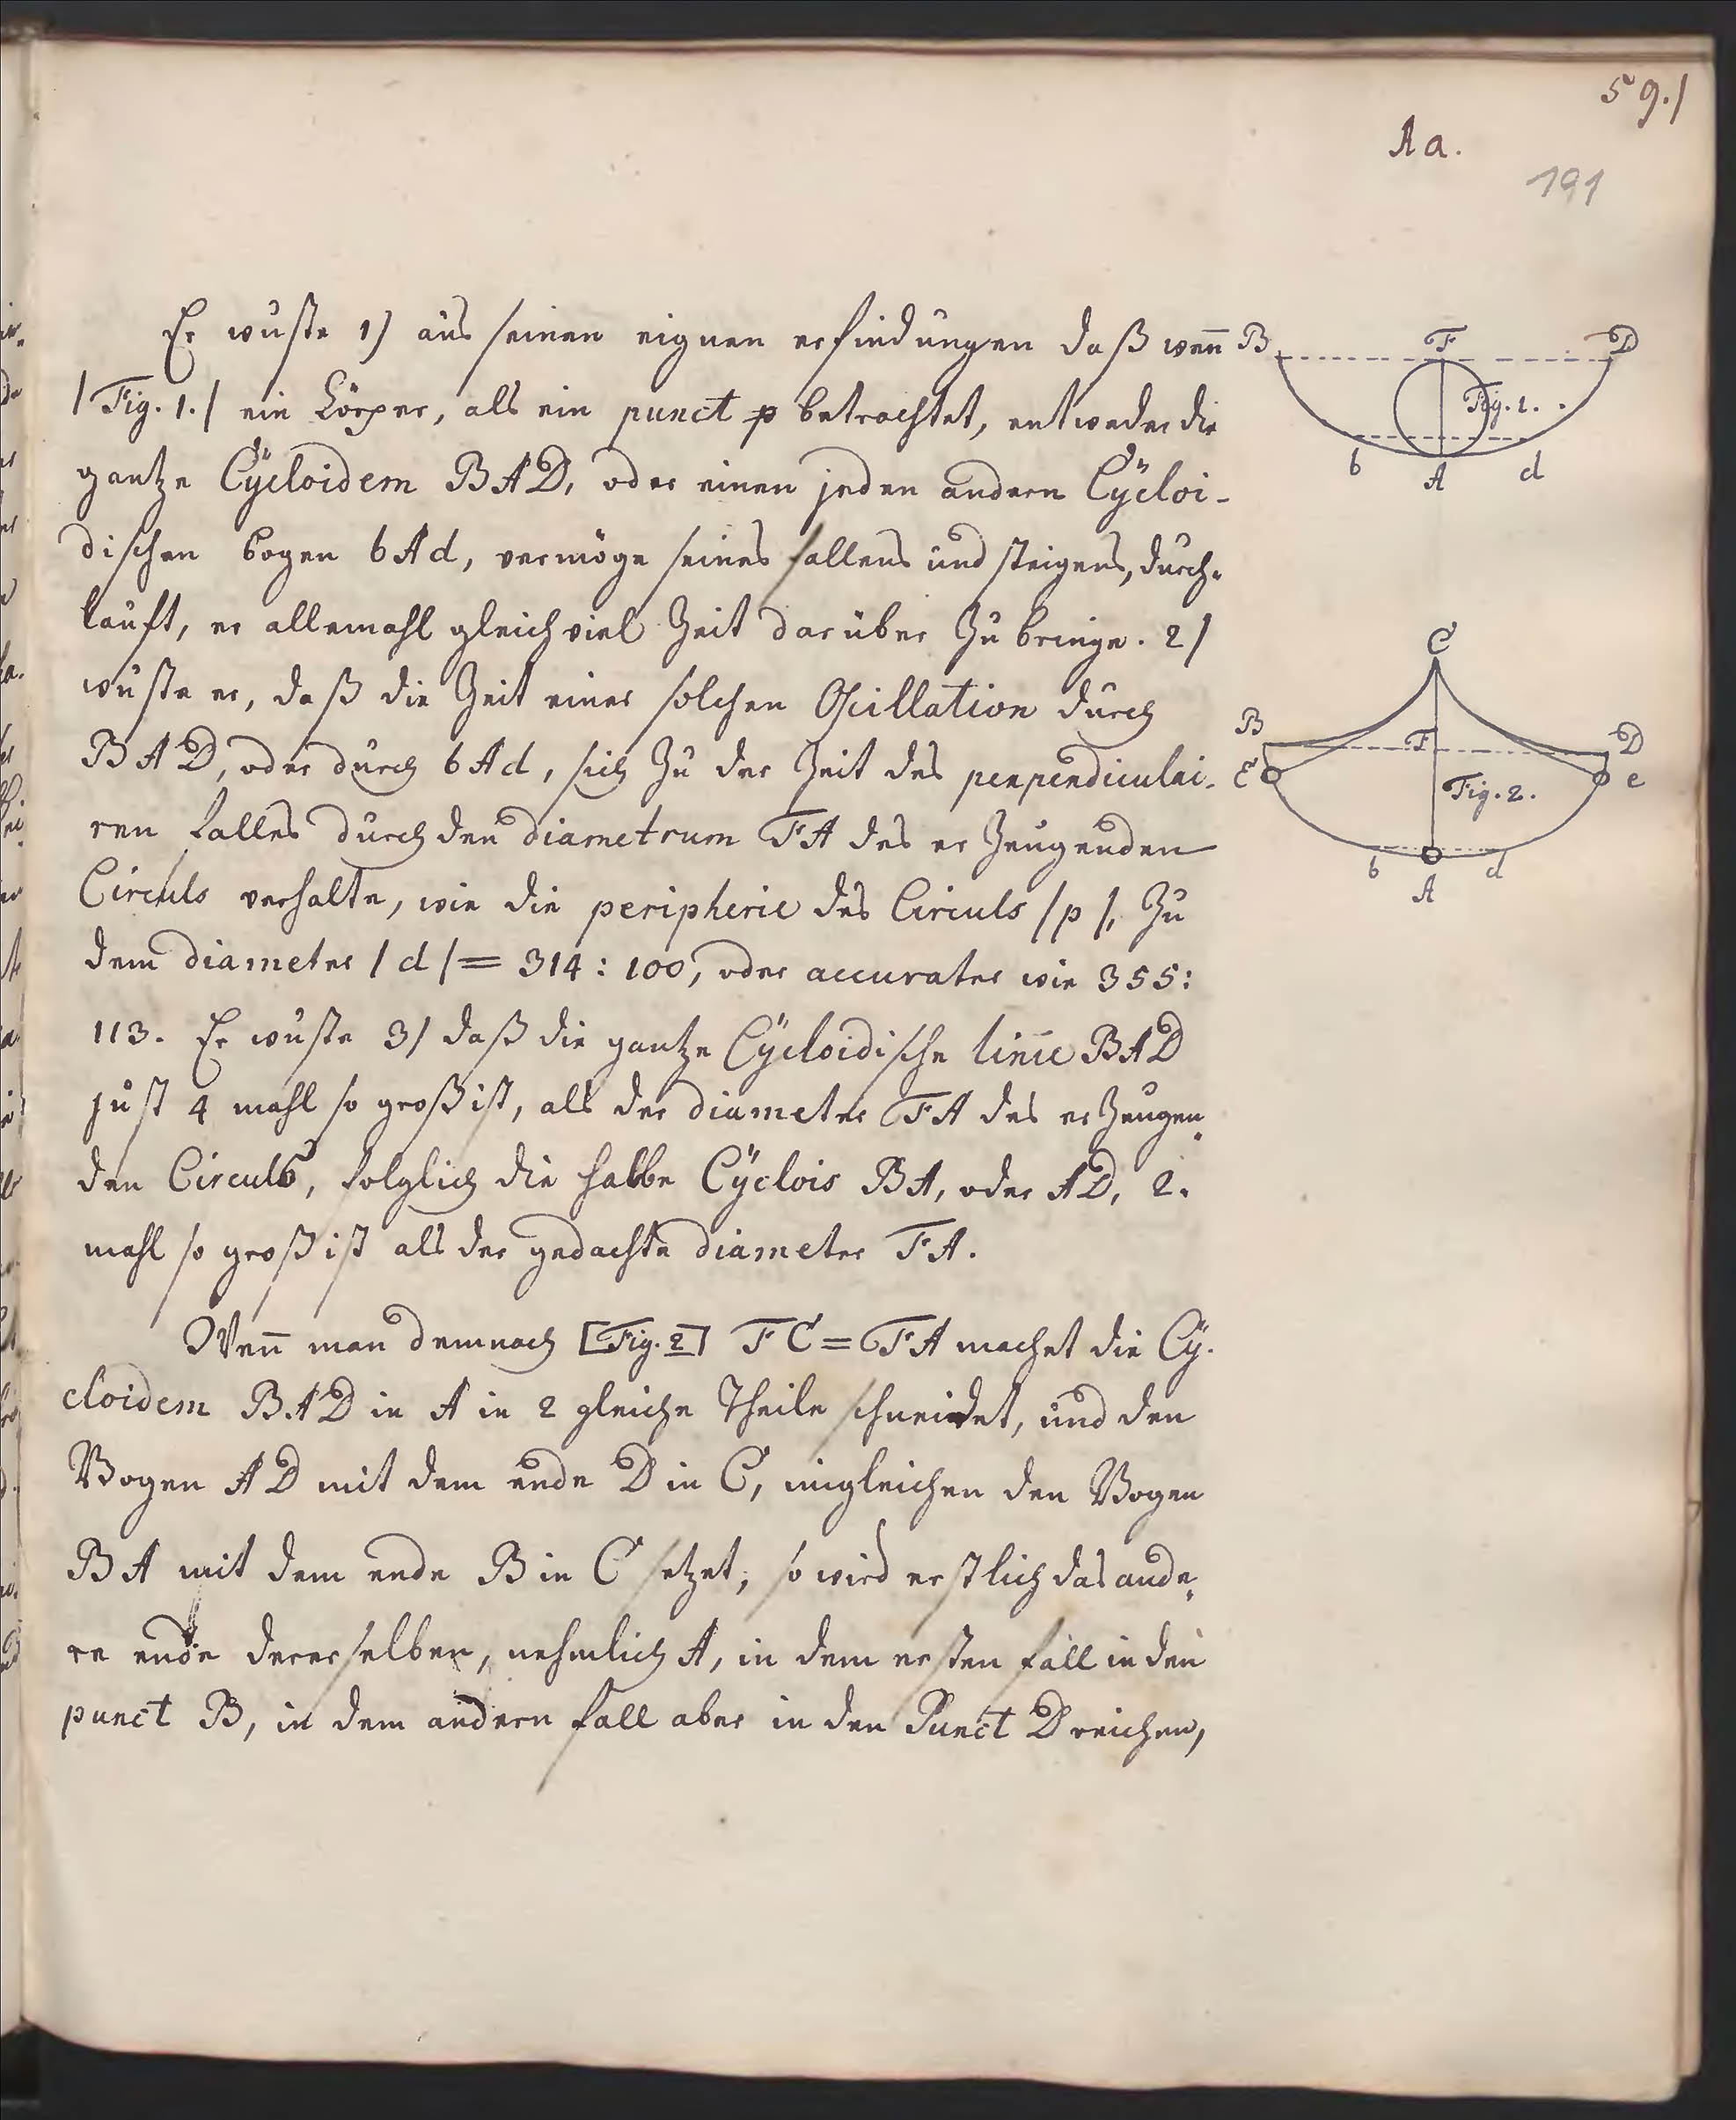 59./
Aa.
191
Er wuste 1) aus seinen eignen erfindungen daß weñ
/Fig. 1./ ein Cörper, als ein punct p betrachtet, entweder die
gantze Cÿcloidem BAD, oder einen jeden andern Cÿcloi-
dischen bogen bAd, vermöge seines fallens und steigens, durch-
lauft, er allemahl gleich viel Zeit darüber Zu bringe. 2/
wuste er, daß die Zeit einer solchen Oscillation durch
BAD, oder durch bAd, sich Zu der Zeit des perpendiculai-
ren falles durch den diametrum FA des erZeugenden
Circuls verhalte, wie die peripherie des Circuls /p/, Zu
dem diameter /d/ = 314 : 100, oder accurater wie 355:
113. Er wuste 3/ daß die gantze Cÿcloidische linie BAD
just 4 mahl so groß ist, als der diameter FA des erZeugen-
den Circuls, folglich die halbe Cÿclois BA, oder AD, 2.
mahl so groß ist als der gedachte diameter FA.
Weñ man demnach [Fig. 2] FC = FA machet die Cÿ-
cloidem BAD in A in 2 gleiche Theile schneidet, und den
Bogen AD mit dem ende D in C, imgleichen den Bogen
BA mit dem ende B in C setzet, so wird erstlich das ande-
re ende dererselben, nehmlich A, in dem ersten fall in den
punct B, in dem andern fall aber in den Punct D reichen,
B F D
Fig. 1.
b A d
C
B F D
E e
Fig. 2.
b d
A